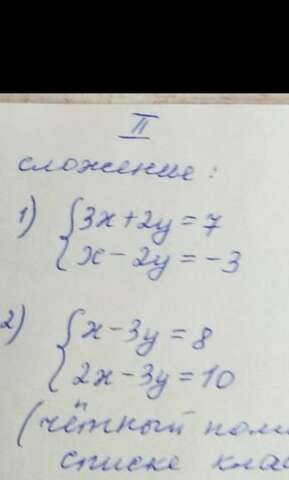 II
сложение:
1) { 3x + 2y = 7
x - 2y = -3
2) { x - 3y = 8
2x - 3y = 10
(чётный
списке